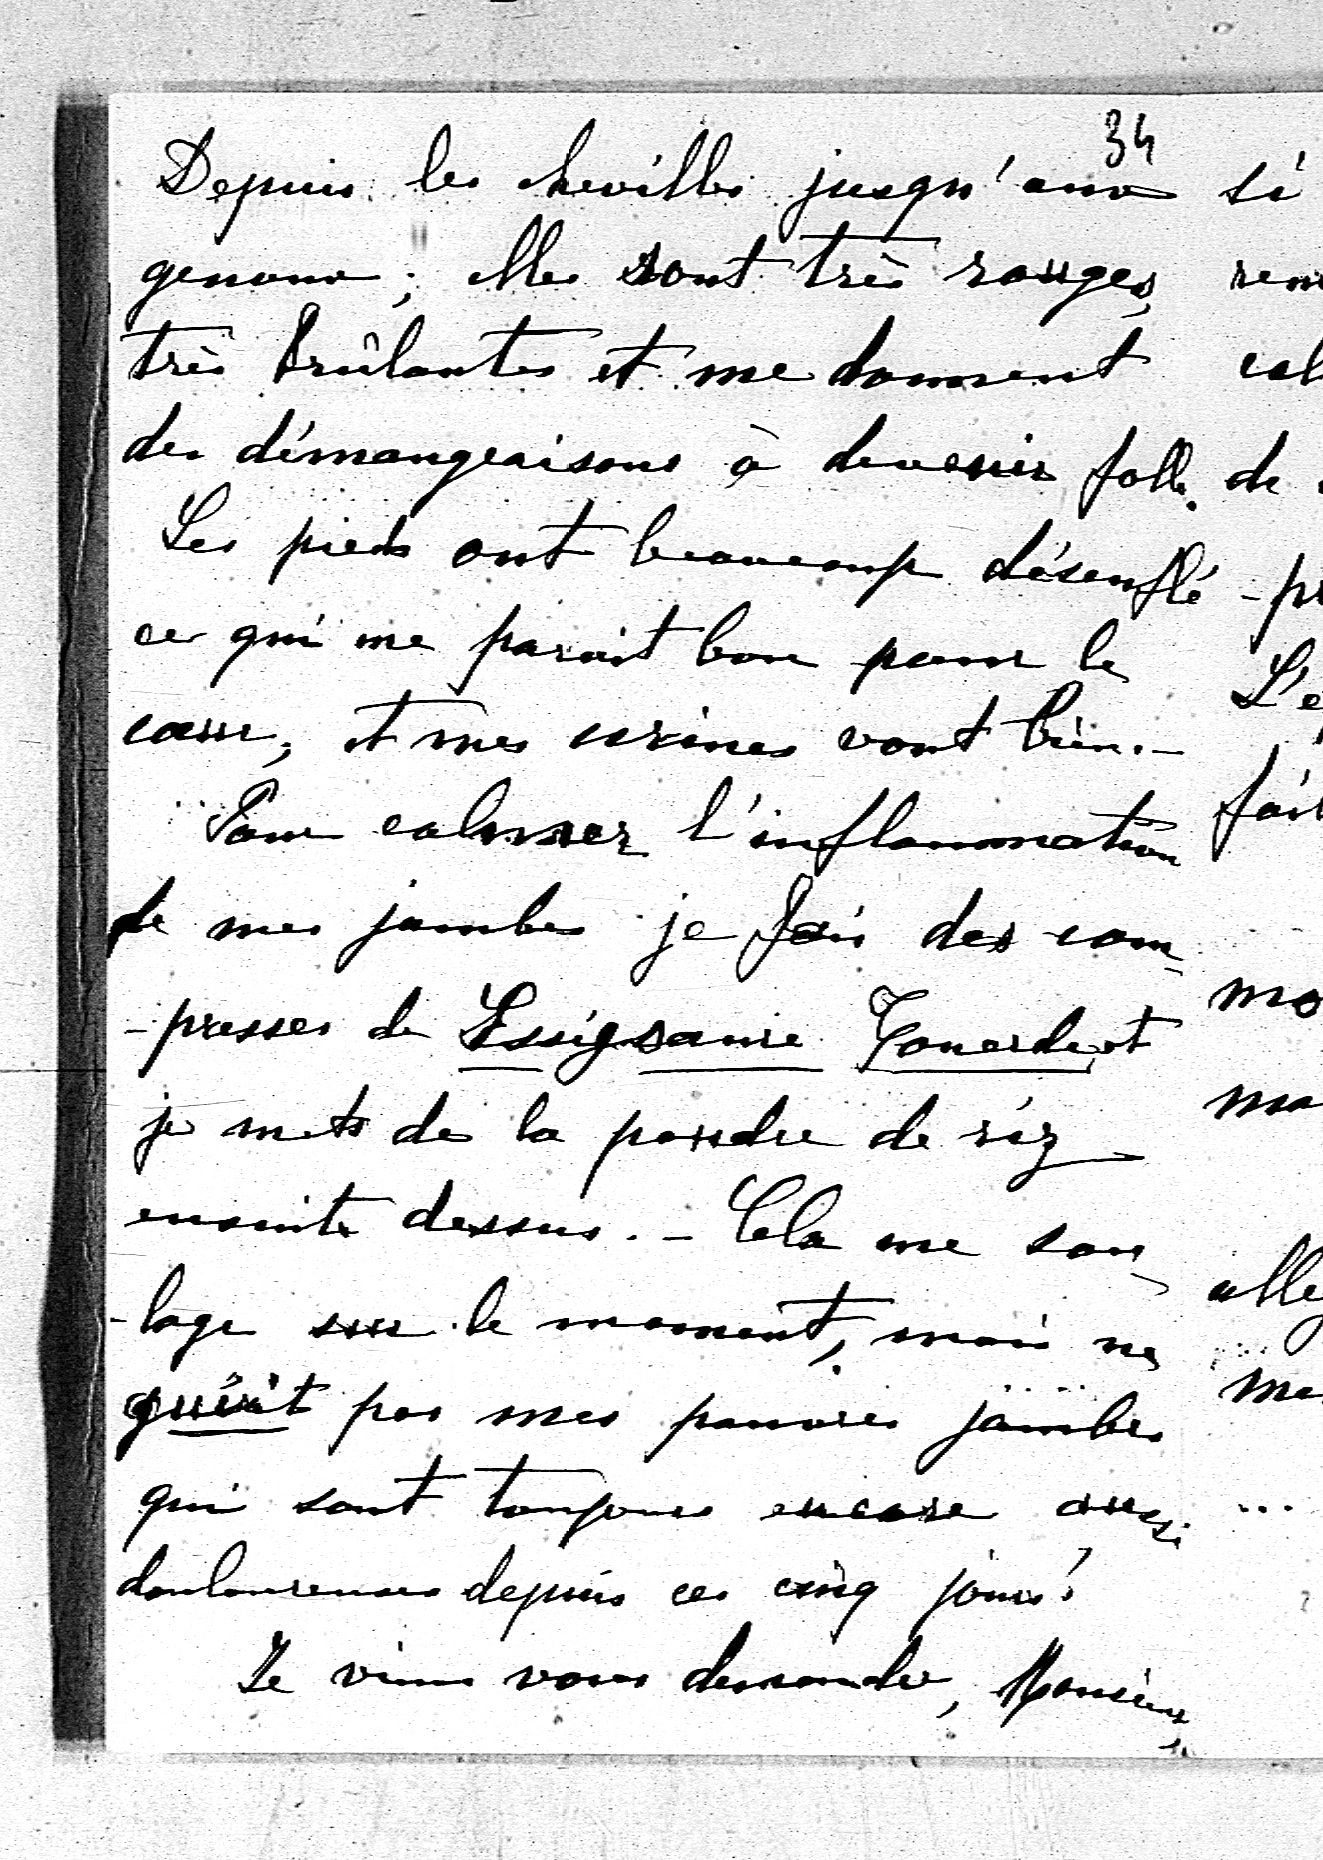 34
Depuis les chevilles jusqu'aux
genoux; elles sont très rouges,
très brûlantes et me donnent
des démangeaisons à devenir folle.
Les pieds ont beaucoup désenflé
ce qui me parait bon pour le
cœur, et mes urines vont bien. -
Pour calmer l'inflammation
de mes jambes je fais des com-
-presses de et
je mets de la poudre de riz
ensuite dessus. - Cela me sou-
-lage sur le moment, mais ne
guérit pas mes pauvres jambes
qui sont toujours encore aussi
douloureuses depuis ces cinq jours!
Je viens vous demander, Monsieur,
si
de
L'e
mo
ma